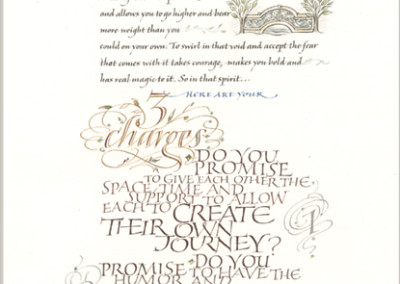 and allows you to go higher and bear
more weight than you
could on your own. To swirl in that void and accept the fear
that comes with it takes courage, makes you bold and
has real magic to it. So in that spirit...
HERE ARE YOUR
3
charges
DO YOU
PROMISE
TO GIVE EACH OTHER THE
SPACE, TIME AND
SUPPORT TO ALLOW
EACH TO CREATE
THEIR OWN
JOURNEY?
DO YOU
PROMISE TO HAVE THE
HUMOR AND